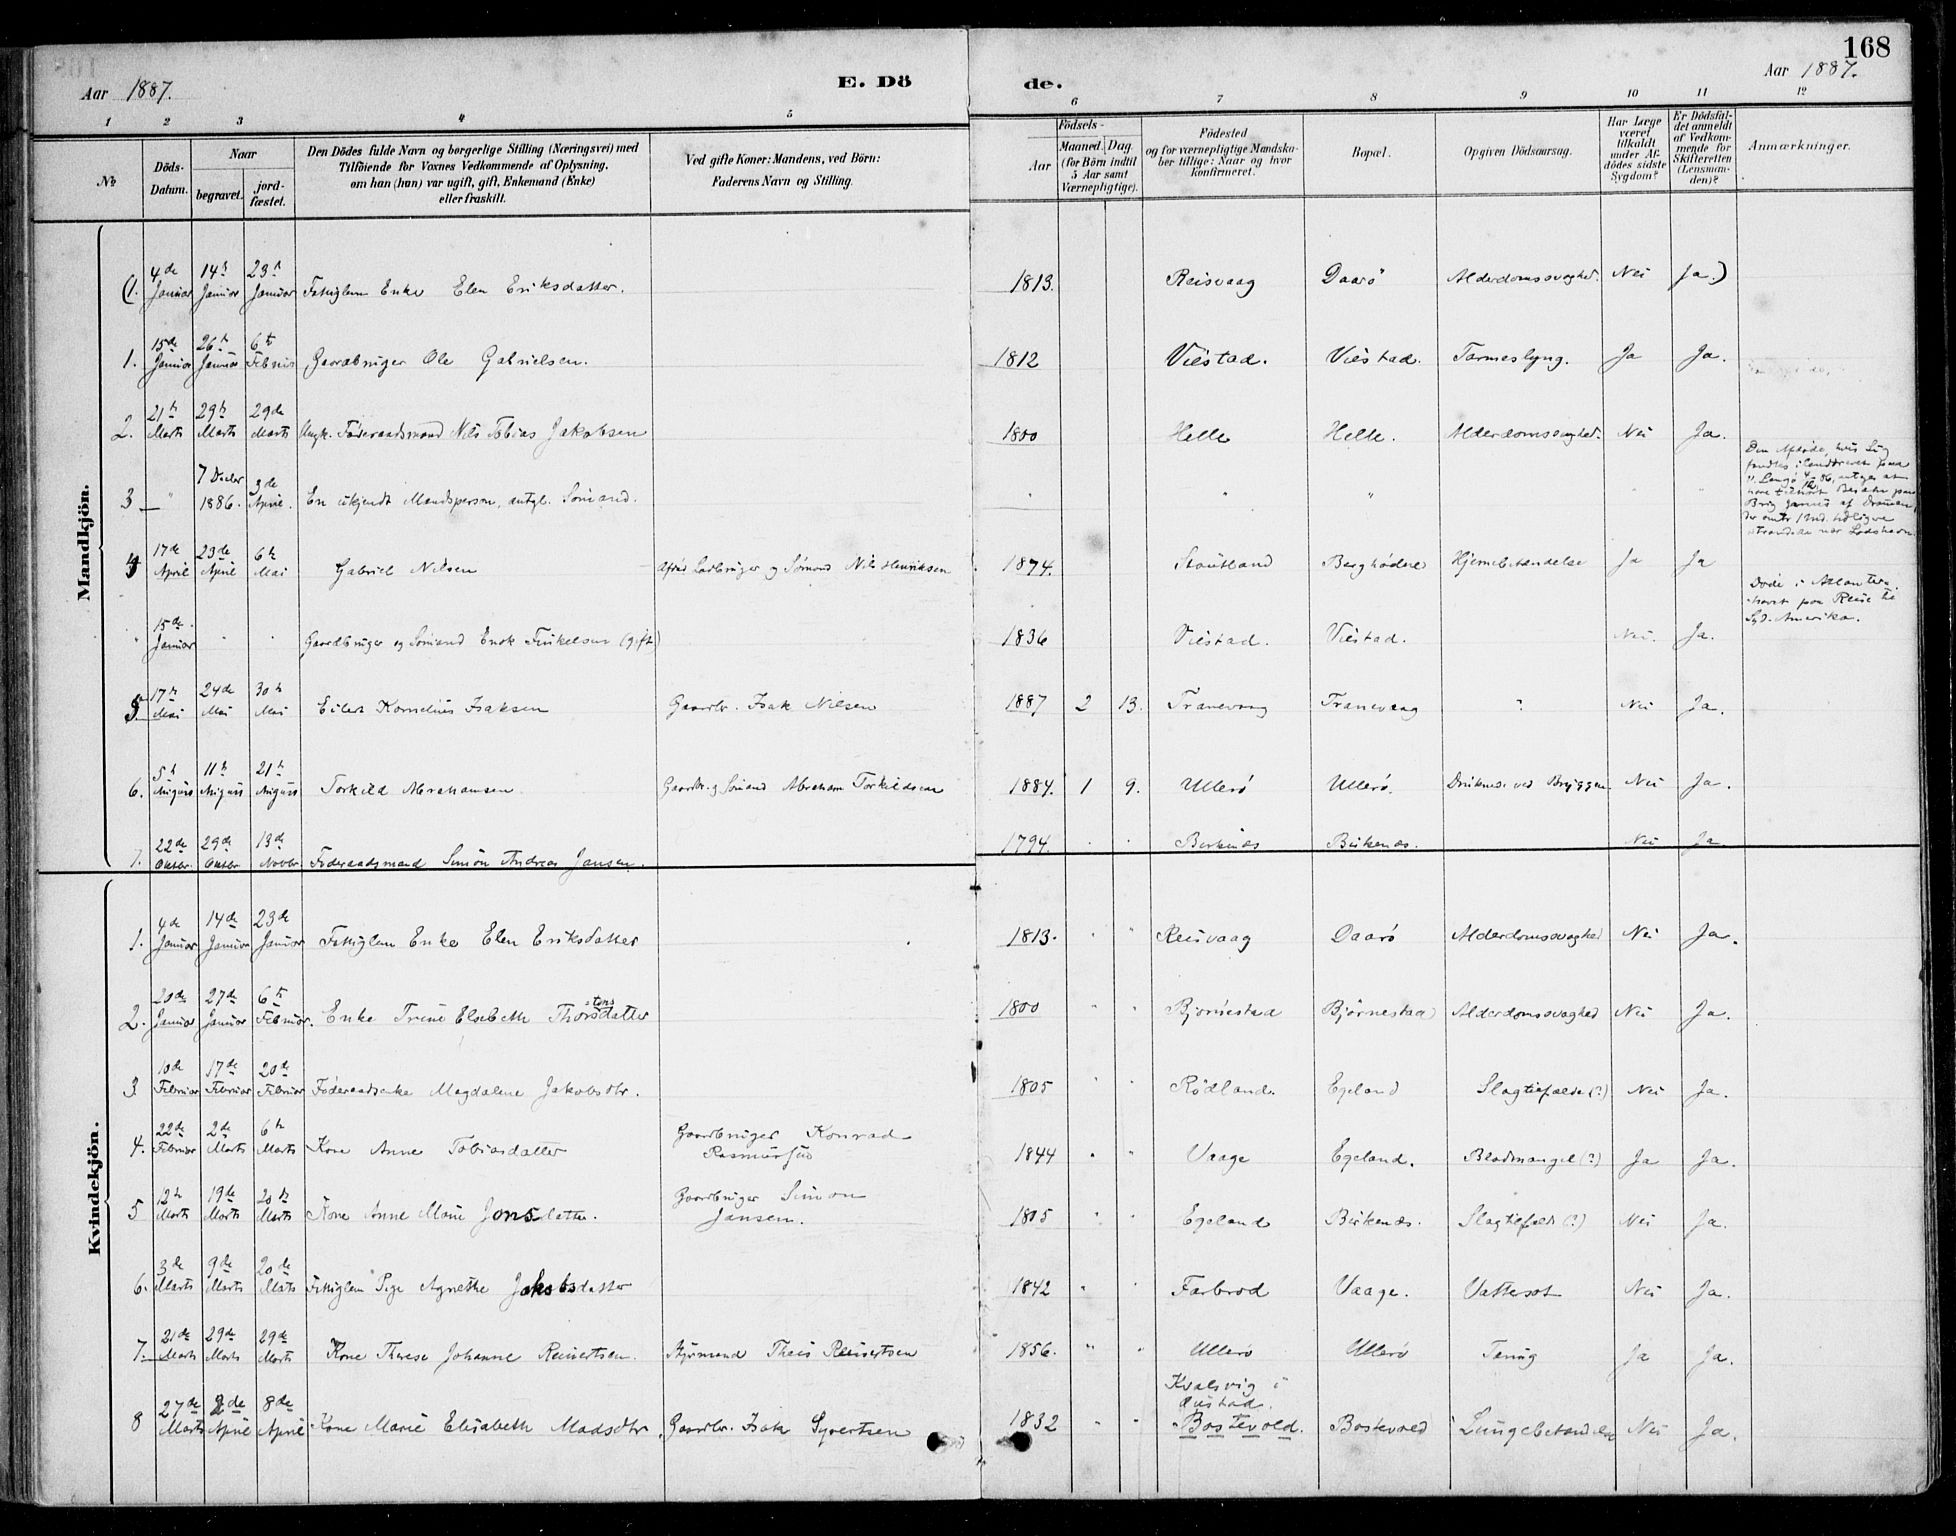 168
Aar 1887.
E. Dö
de.
Aar 1887.
1 2 3 4 5 6 7 8 9 10 11 12
№
Döds-Datum.
Naar
begravet.
jord-fæstet.
Den Dödes fulde Navn og borgerlige Stilling (Næringsvei) med
Tilföiende for Voxnes Vedkommende af Oplysning,
om han (hun) var ugift, gift, Enkemand (Enke)
eller fraskilt.
Ved gifte Koner: Mandens, ved Börn:
Faderens Navn og Stilling.
Födsels-
Aar
Maaned. Dag.
(for Börn indtil
5 Aar samt
Værnepligtige).
Födested
og for værnepligtige Mandska-
ber tillige: Naar og hvor
konfirmeret.
Bopæl.
Opgiven Dödsaarsag.
Har Læge
været
tilkaldt
under Af-
dödes sidste
Sygdom?
Er Dödsfal-
det anmeldt
af Vedkom-
mende for
Skifteretten
(Lensman-
den)?
Anmærkninger.
Mandkjön.
(1. 4de Januar 14de Januar 23de Januar Fattiglem Enke Elen Eriksdatter. 1813. Reisvaag Daarø Alderdomssvaghed. Nei Ja.)
1. 15de Januar 26de Januar 6te Februar Gaardbruger Ole Gabrielsen. 1812 Viestad. Viestad. Tarmeslyng. Ja Ja.
2. 21de Marts 29de Marts 29de Marts Ungk. Føderaadsmand Nils Tobias Jakobsen 1800 Helle Helle. Alderdomssvaghed. Nei Ja.
3 — " 7 Decbr 1886. 3de April. En ukjendt Mandsperson, antgl. Sømand. " " "
Den Afdøde, hvis Lig
fandtes i Landdrevet paa
Langø 4/12 86, antages at
have tilhørt Besætn. paa
Brig
strandede nær Lodshavn.
4 17de April 23de April 6te Mai Gabriel Nilsen Afdøde Gaardbruger og Sømand Nils Henriksen 1874. Stoutland Berghødne Hjernebetændelse Ja Ja
" 15de Januar " " Gaardbruger og Sømand Enok Tinkelsen (gift) 1836 Viestad. Viestad. Nei. Ja.
Døde i Atlanter-
havet paa Reise til
Syd-Amerika.
5 17de Mai 24de Mai 30te Mai Eilert Kornelius Isaksen Gaardbr. Isak Nilsen 1887 2 13. Tranevaag Tranevaag " Nei Ja.
6. 5te August 11te August 21de August Torkild Abrahamsen Gaardbr. og Sømand Abraham Torkildsen 1884. 1 9. Ullerø Ullerø. Druknede ved Bryggen Nei Ja.
7. 22de Oktbr. 29de Oktbr. 13de Novbr. Føderaadsmand Simon Andreas Jansen. 1794. " " Birkenes Birkenes. Nei Ja.
Kvindekjön.
1. 4de Januar 14de Januar 23de Januar Fattiglem Enke Elen Eriksdatter 1813. " " Reisvaag Daarø Alderdomssvaghed Nei Ja.
2. 20de Januar 27de Januar 6te Februar. Enke Trine Elsebeth Thorstensdatter 1800 " " Bjørnestad Bjørnestad Alderdomssvaghed Nei Ja.
3 10de Februar 17de Februar 20de Februar Føderaadsenke Magdalene Jakobsdtr. 1805 " " Rødland. Egeland Slagtilfælde (?) Nei Ja.
4. 22de Februar 2de Marts 6te Marts Kone Anne Tobiasdatter Gaardbruger Konrad Rasmussen 1844 " " Vaage Egeland. Blodmangel (?) Ja Ja.
5 12te Marts 19de Marts 20de Marts Kone Anne Marie Jonsdatter. Gaardbruger Simon Jansen. 1805 " " Egeland Birkenes. Slagtilfæld (?) Nei Ja.
6. 3de Marts 9de Marts 20de Marts Fattiglem Pige Agnethe Jakobsdatter 1842 " " Farbrod Vaage. Vattersot Nei Ja.
7. 21de Marts 29de Marts 29de Marts Kone Therese Johanne Reinertsen. Styrmand Theis Reinertsen 1856. " " Ullerø Ullerø Tæring Ja Ja.
8 27de Marts 2de April 8de April Kone Marie Elisabeth Madsdtr. Gaardbr. Isak Syvertsen 1832 " " Kvalsvig i Austad. Bostevold. Bostevold Lungebetændelse Nei Ja.